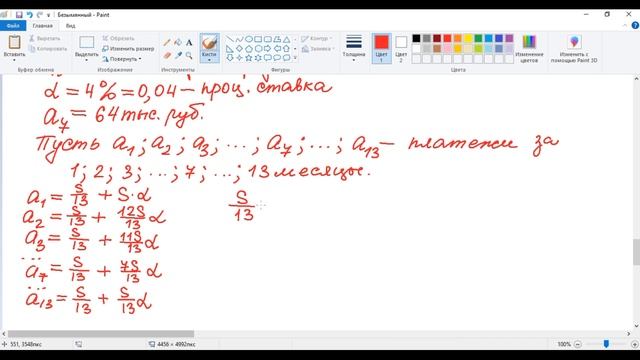 Безымянный - Paint
Файл
Главная
Вид
Вставить
Вырезать
Копировать
Буфер обмена
Выделить
Обрезать
Изменить размер
Повернуть
Изображение
Инструменты
Кисти
Контур
Заливка
Фигуры
Толщина
Цвет 1
Цвет 2
Цвета
Изменение цветов
Изменить с помощью Paint 3D
α = 4% = 0,04 – проц. ставка
a₇ = 64 тыс. руб.
Пусть a₁; a₂; a₃; ...; a₇; ...; a₁₃ – платежи за
1; 2; 3; ...; 7; ...; 13 месяцы.
a₁ = S/13 + S·α
S/13
a₂ = S/13 + 12S/13 α
a₃ = S/13 + 11S/13 α
...
a₇ = S/13 + 7S/13 α
...
a₁₃ = S/13 + S/13 α
551, 3548пкс
4456 × 4992пкс
100%